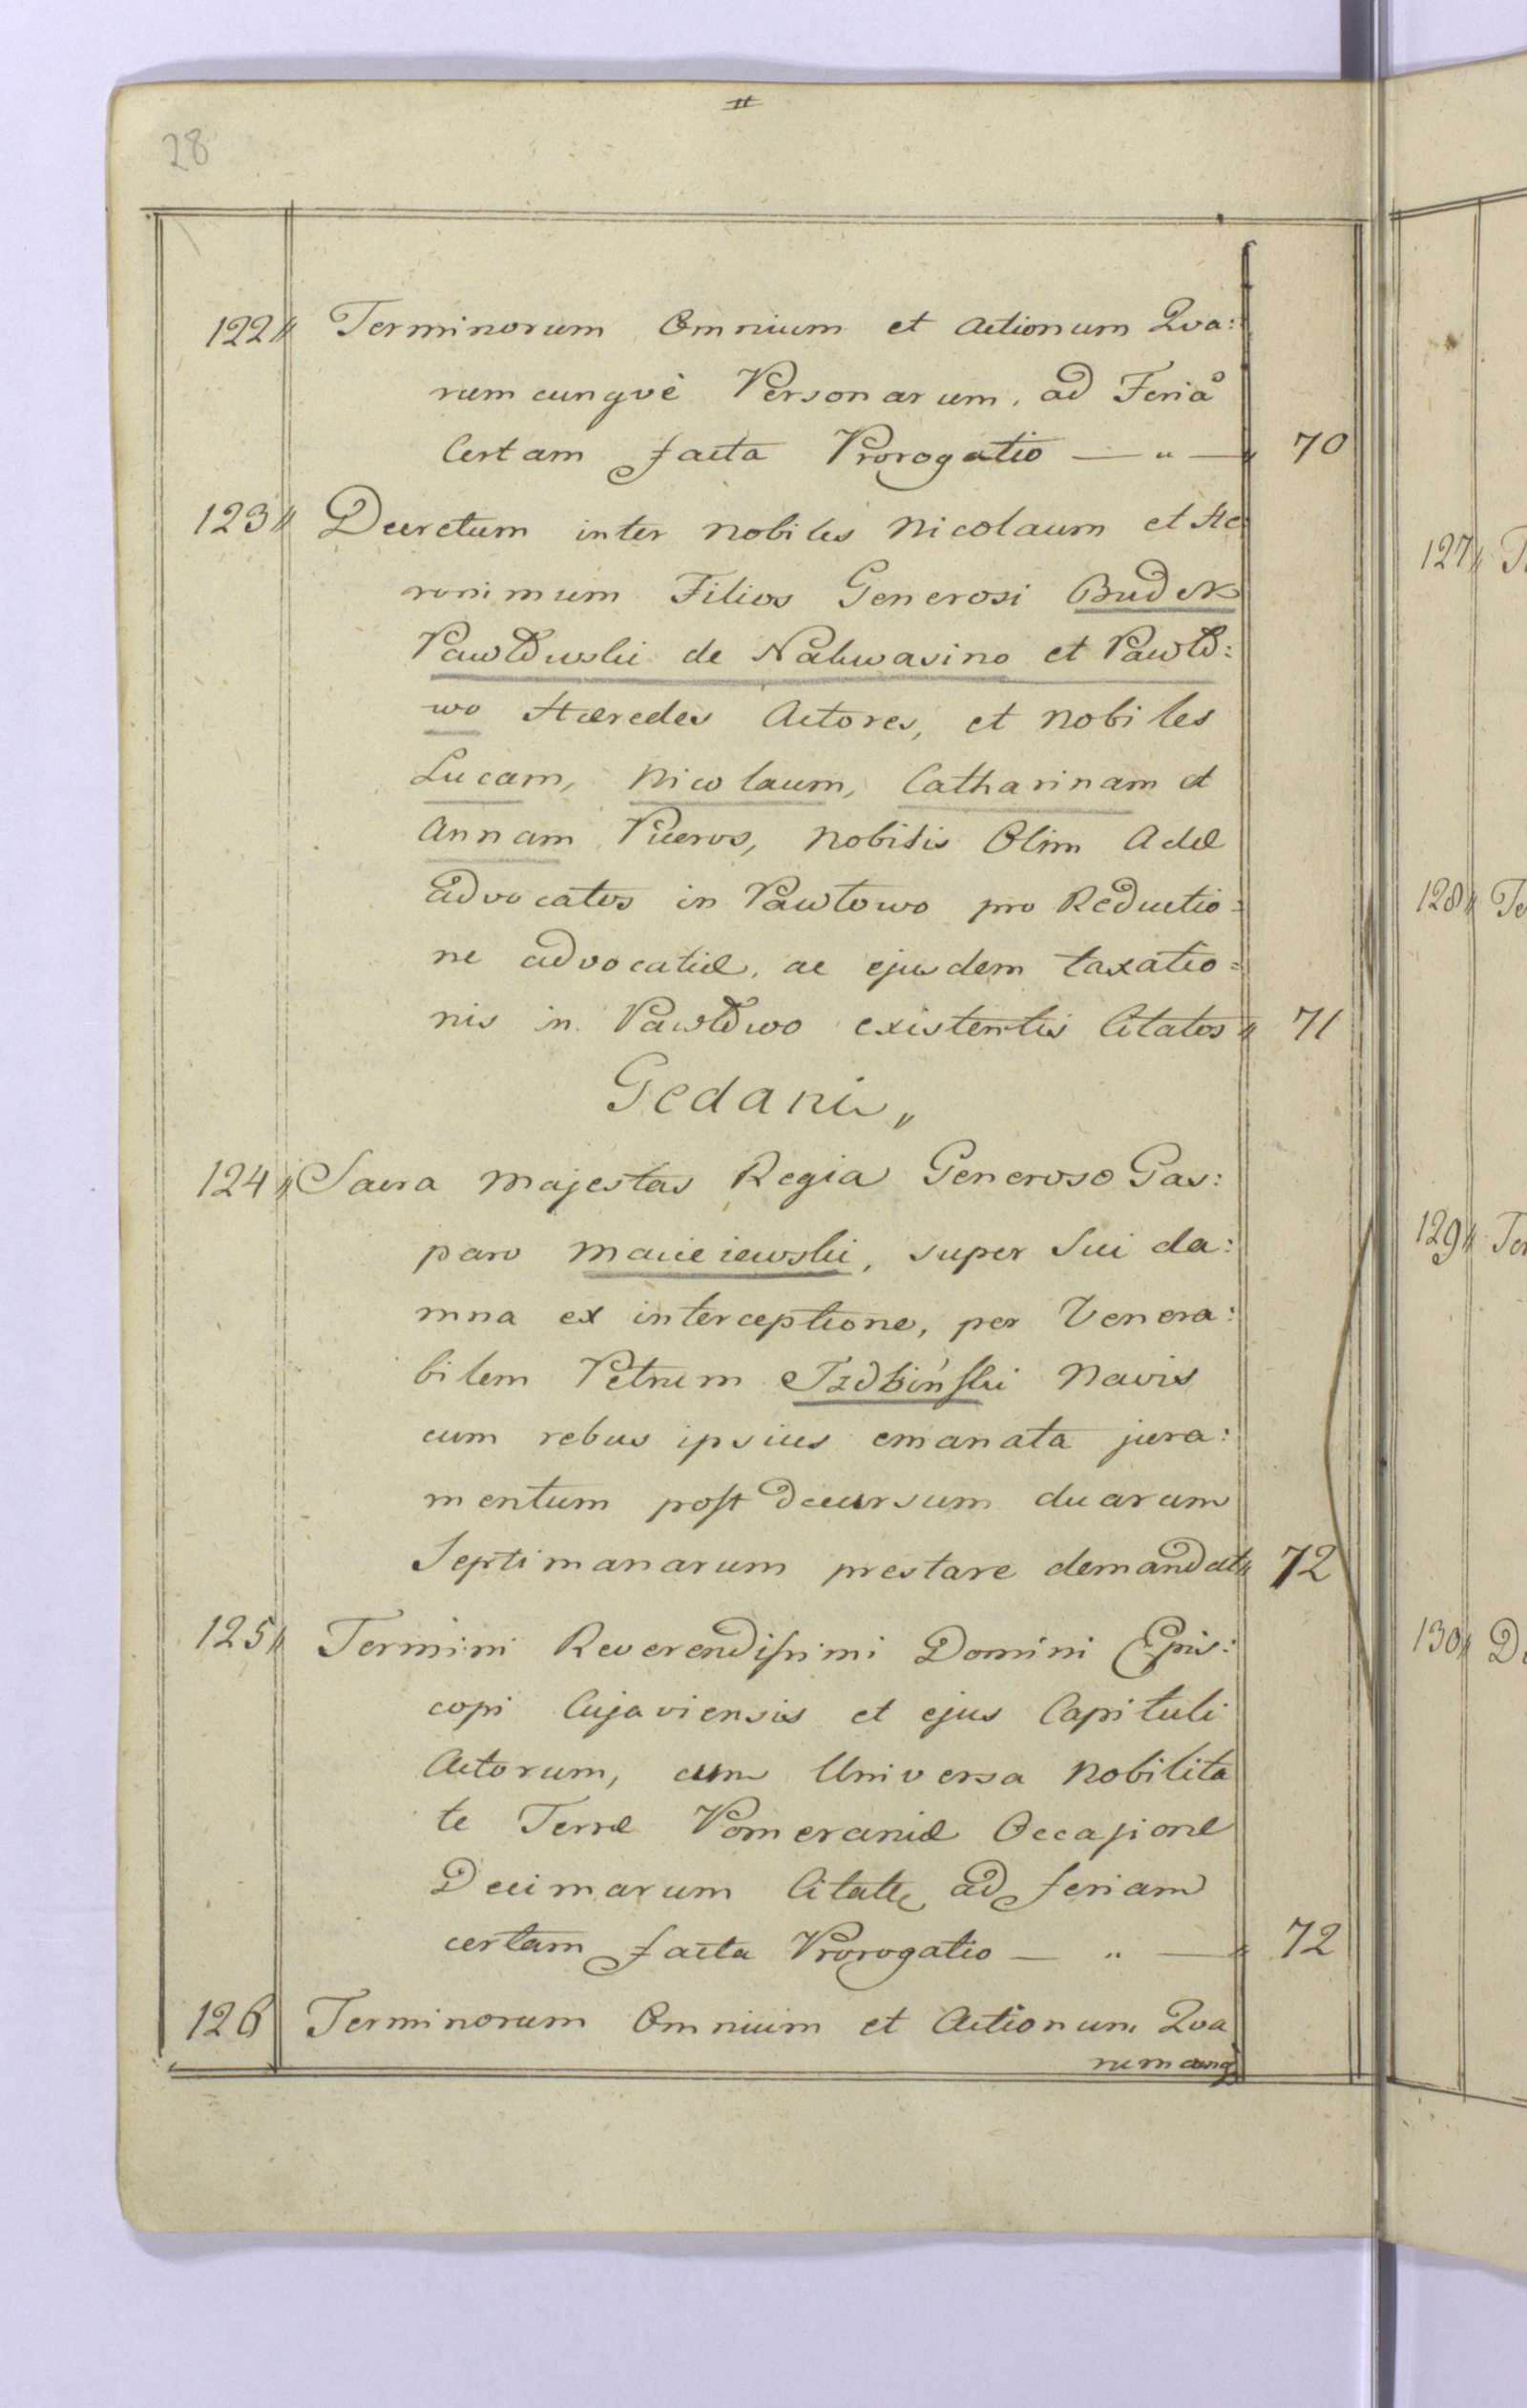 28
122 Terminorum Omnium et Actionum Qva:
rumcunqvè Personarum, ad Feriã
Certam facta Prorogatio — " — 70
123 Decretum inter Nobiles Nicolaum et He
ronimum Filios Generosi Budek
Pawłowski de Nakwasino et Pawło:
wo Hæredes Actores, et Nobiles
Lucam, Nicolaum, Catharinam et
Annam Pueros, Nobilis Olim Adæ
Advocatos in Pawłowo pro Reductio=
ne advocatiæ, ac ejusdem taxatio=
nis in Pawłowo existentis Citatos 71
Gedani „
124 Sacra Majestas Regia Generoso Gas:
paro Macieiewski, super sui da:
mna ex interceptione, per Venera:
bilem Petrum Izdbiński Navis
cum rebus ipsius emanata jura:
mentum post decursum duarum
Septimanarum prestare demandat 72
125 Termini Reverendissimi Domini Epis:
copi Cujaviensis et ejus Capituli
Actorum, cum Universa Nobilita
te Terræ Pomeraniæ Occasione
Decimarum Citatæ ad feriam
certam facta Prorogatio — " — 72
126 Terminorum Omnium et Actionum Qva
rumcunq
127
128 Te
129 Ter
130 De